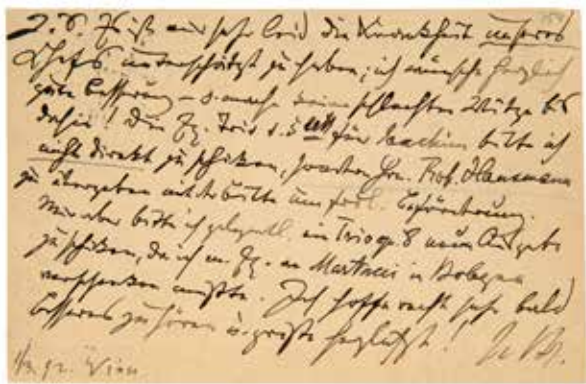 Es ist mir sehr leid die Krankheit unseres
Chefs unterschätzt zu haben; ich wünsche herzlich
gute Besserung – u. mache keine schlechten Witze bis
dahin! Die Ex. Trio u. 5tett für Joachim bitte ich
nicht direkt zu schicken, sondern Hrn. Prof. Hausmann
zu übergeben mit d. Bitte um frdl. Beförderung.
Mir aber bitte ich gelegentl. ein Trio op. 8 neue Ausgabe
zu schicken, da ich m. Ex. an Martucci in Bologna
verschenken mußte. Ich hoffe recht sehr bald
Besseres zu hören u. grüße herzlichst! J. Br.
92. Wien